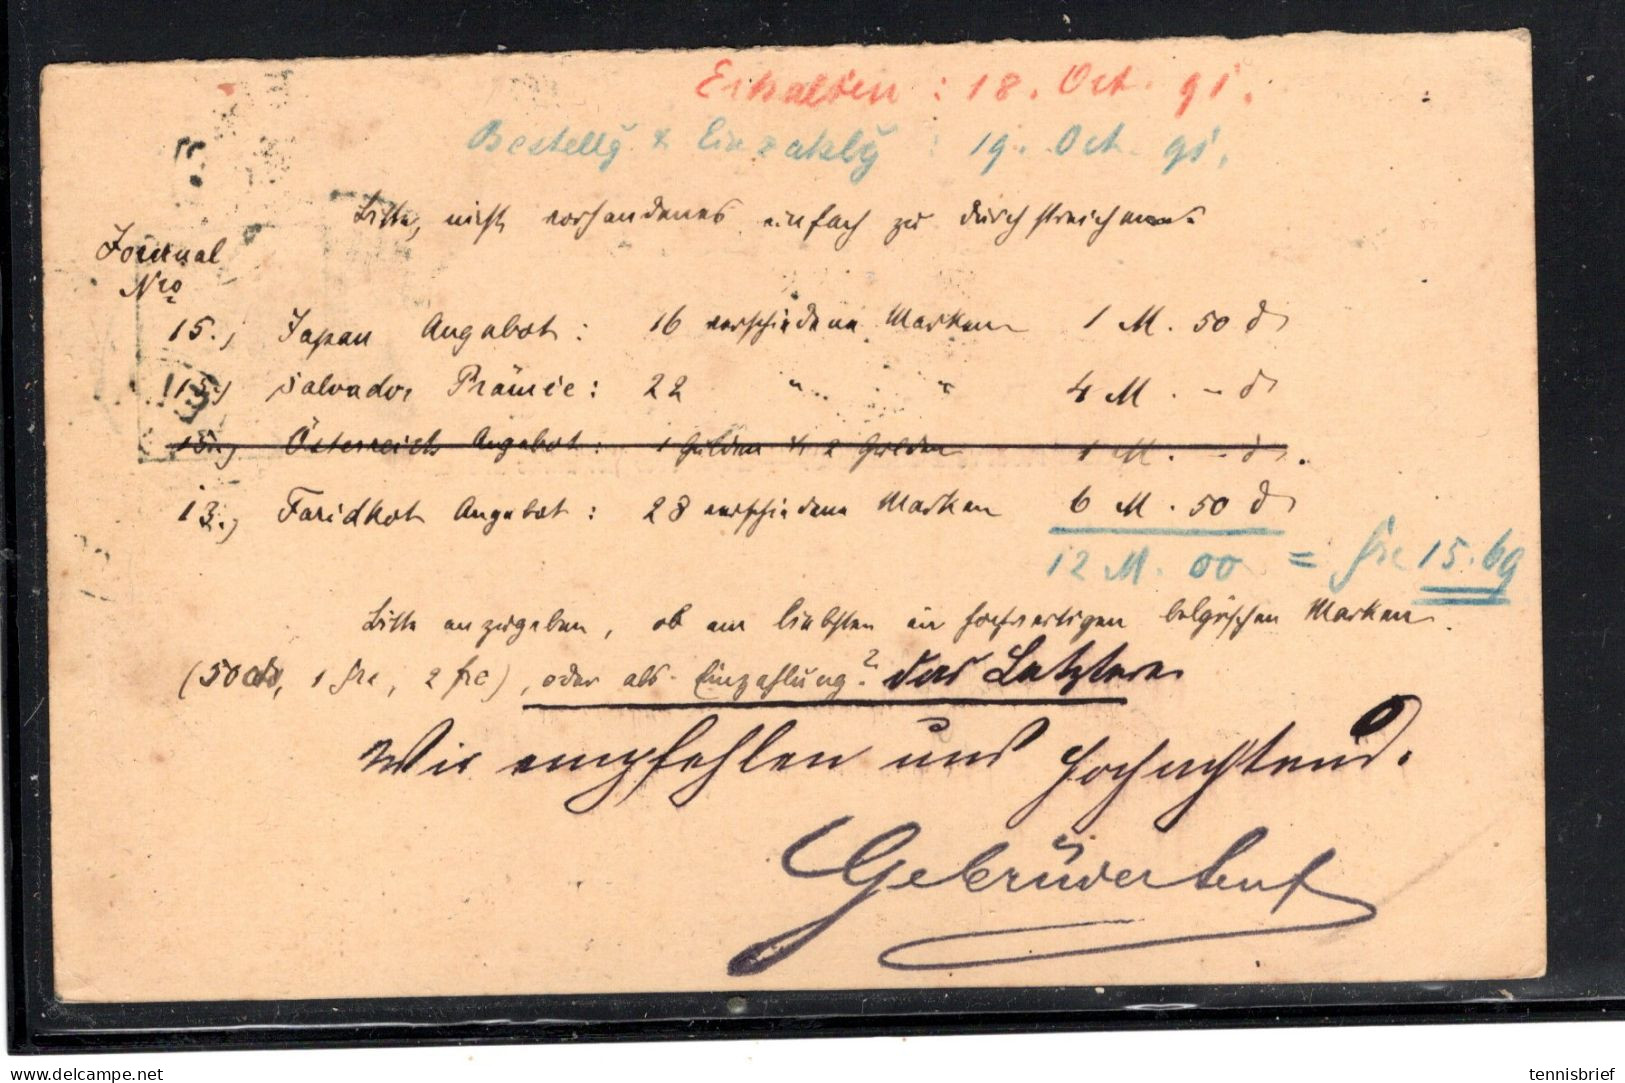 Erhalten : 18. Oct. 91.
Bestellg & Einzahlg : 19. Oct. 91.
Bitte, nicht vorhandenes einfach zu durchstreichen.
Journal
Nro
15., Japan Angebot : 16 verschiedene Marken 1 M. 50 ₰
15., Salvador Prämie : 22 " " 4 M. - ₰
15., Österreich Angebot : 1 Gulden & 2 Gulden 1 M. - ₰.
13., Faridkot Angebot : 28 verschiedene Marken 6 M. 50 ₰
12 M. 00 = frc 15.69
Bitte anzugeben, ob am liebsten in hochwertigen belgischen Marken
(50 cts, 1 frc, 2 frc), oder als Einzahlung? das Letztere
Wir empfehlen uns hochachtend.
Gebrüder Senf
tennisbrief